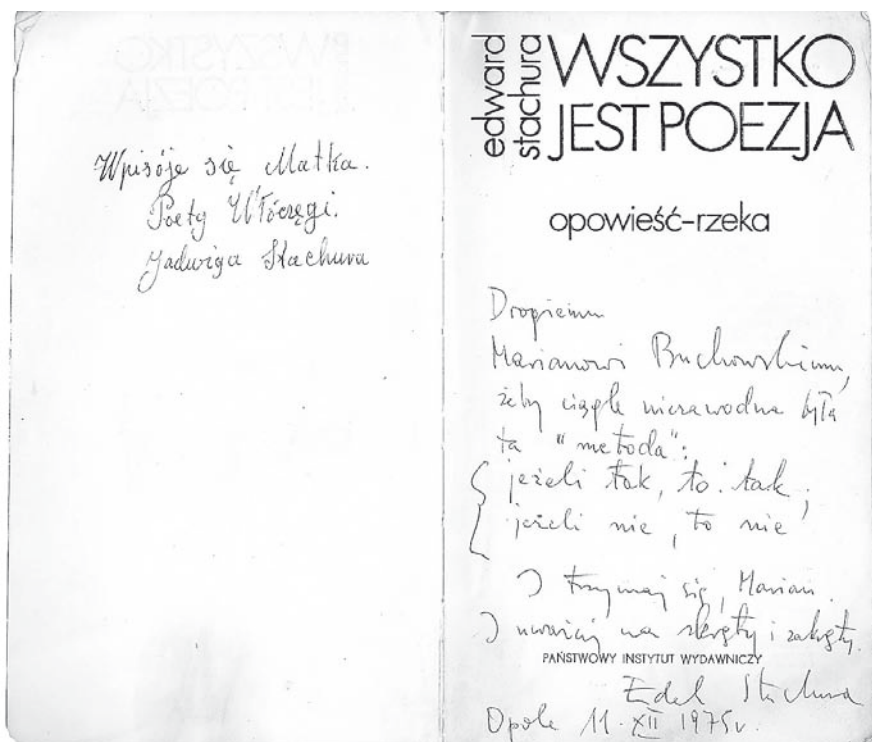 Wpisóje się Matka.
Poety Włóczęgi.
Jadwiga Stachura
edward
stachura
WSZYSTKO
JEST POEZJA
opowieść-rzeka
Drogiemu
Marianowi Buchowskiemu,
żeby ciągle niezawodna była
ta "metoda":
jeżeli tak, to tak;
jeżeli nie, to nie
I trzymaj się, Marian.
I uważaj na skręty i zakręty.
PAŃSTWOWY INSTYTUT WYDAWNICZY
Edek Stachura
Opole 11. XII 1975 r.